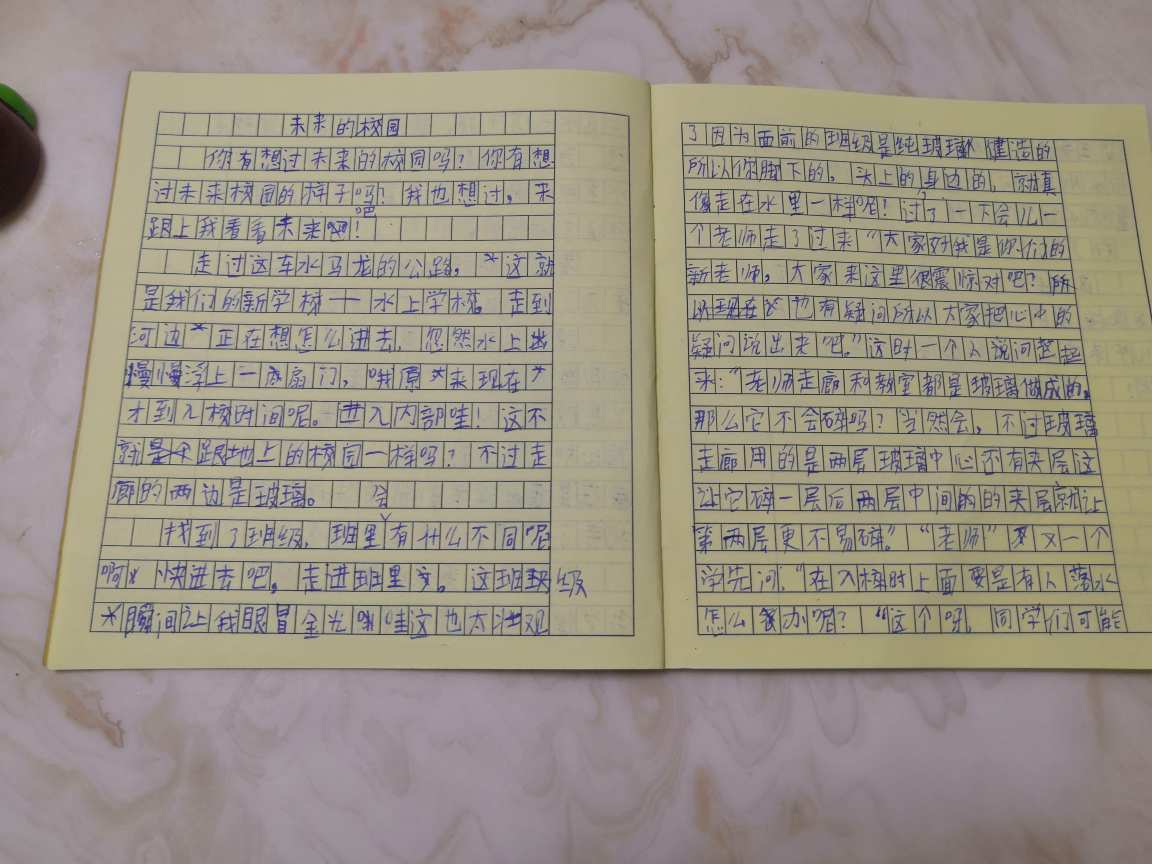 未来的校园
你有想过未来的校园吗？你有想
过未来校园的样子吗！我也想过，来
跟上我看看未来吧！
走过这车水马龙的公路，这就
是我们的新学校——水上学校。走到
河边正在想怎么进去，忽然水上出
慢慢浮上一底扇门，哦原来现在
才到入校时间呢。进入内部哇！这不
就是跟地上的校园一样吗？不过走
廊的两边是玻璃。
找到了班级，班里会有什么不同呢
啊快进去吧。走进班里。这班级
瞬间让我眼冒金光哇这也太壮观
了因为面前的班级是纯玻璃建造的
所以你脚下的，头上的，身边的，就真
像走在水里一样呢！过了一下会儿一
个老师走了过来“大家好我是你们的
新老师，大家来这里很震惊对吧？所
以现在也有疑问所以大家把心中的
疑问说出来吧。”这时一个人说问起
来：“老师走廊和教室都是玻璃做成的，
那么它不会碎吗？当然会，不过玻璃
走廊用的是两层玻璃中心还有夹层这
让它碎一层后两层中间的的夹层就让
第两层更不易碎。”“老师”又一个
学先问：“在入校时上面要是有人落水
怎么办呢？“这个呀，同学们可能